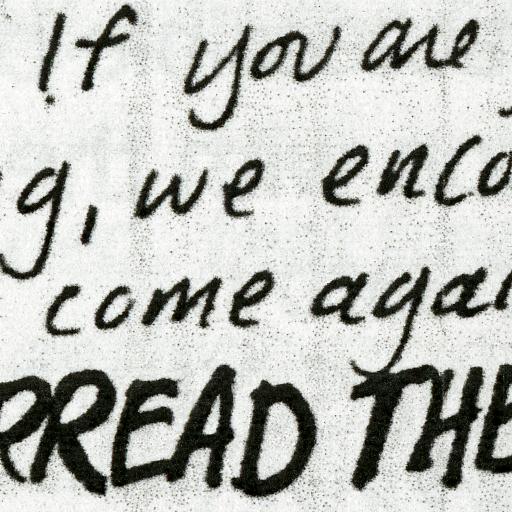 If you are
g, we enco
come agai
RREAD THE